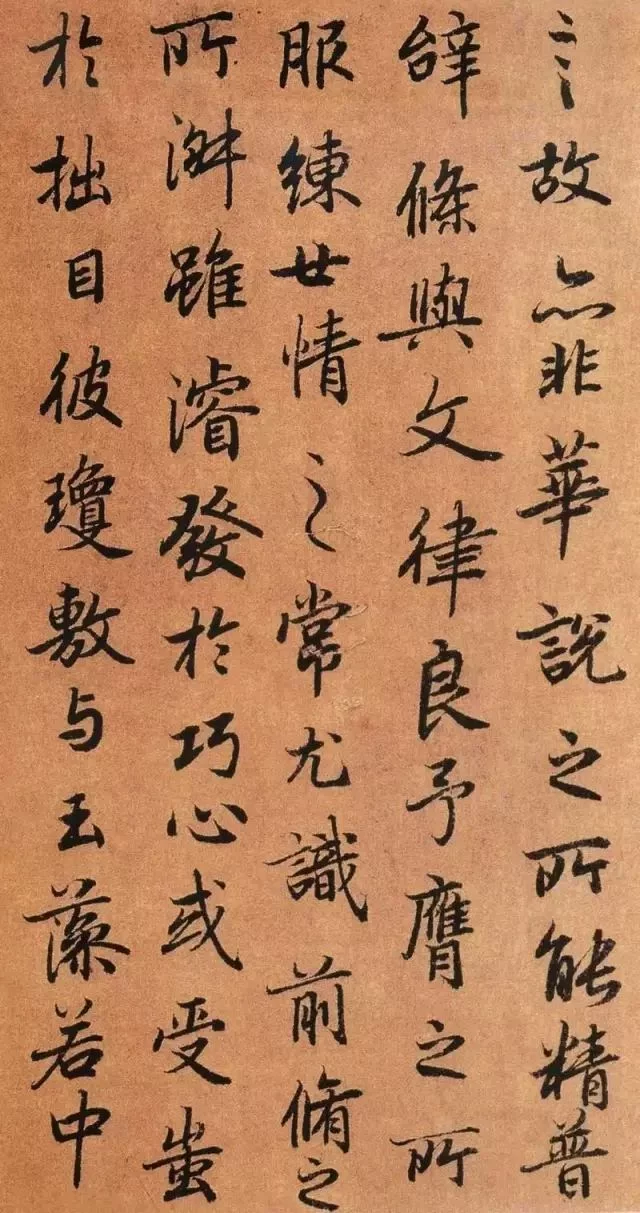 言故亦非華說之所能精普
辝條與文律良予膺之所
服練世情之常尤識前脩之
所淑雖濬發於巧心或受蚩
於拙目彼瓊敷与玉藻若中